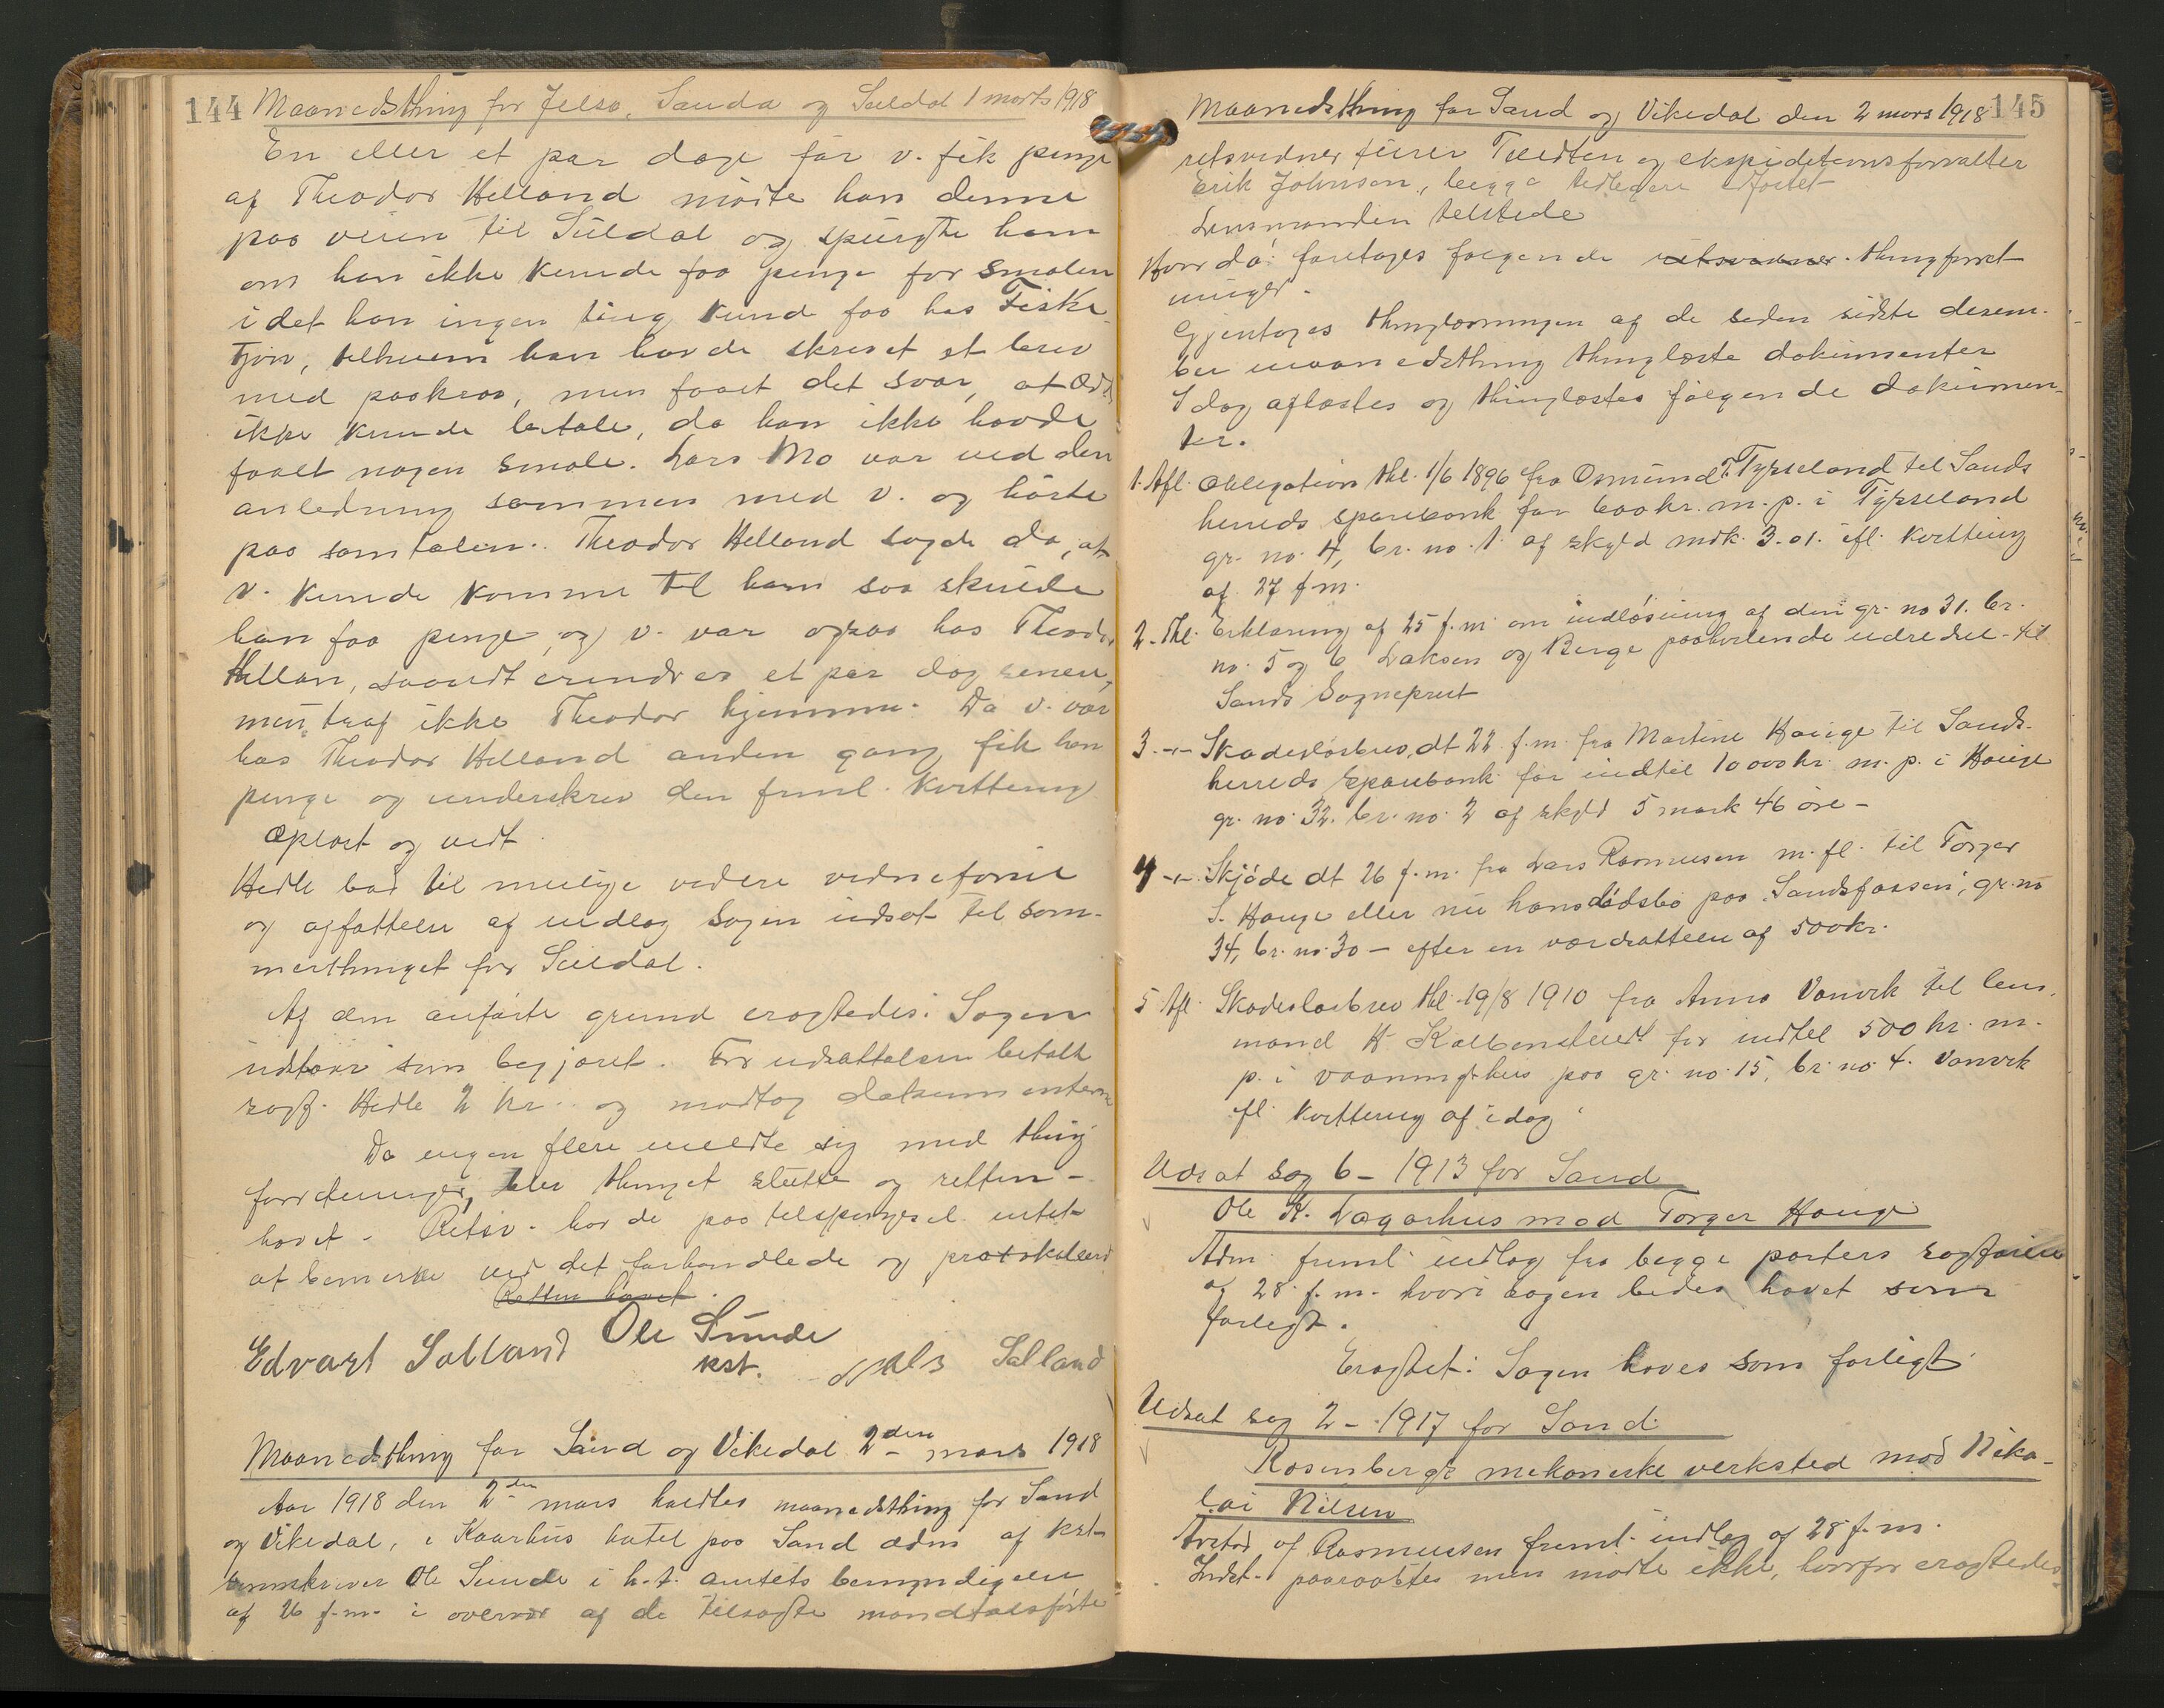 144 Maanedsthing for Jelsø, Sauda og Suldal 1 marts 1918
En eller et par dage før v. fik penge
af Theodor Helland mødte han denne
paa veien til Suldal og spurgte ham
om han ikke kunde faa penge for smalen
i det han ingen ting kund faa hos Fiske-
tjøn, tilhvem han havde skrevet et brev
med paakrav, men faaet det svar, at
ikke kunde betale, da han ikke havde
faaet nogen smale. Lars Mo var ved den
anledning sammen med v. og hørte
paa samtalen. Theodor Helland sagde da, at
v. kunde komme til ham saa skulde
han faa penge, og v. var ogsaa hos Theodor
Hellan, saavidt erindres et par dag senere,
men traf ikke Theodor hjemme. Da v. var
hos Theodor Helland anden gang fik han
penge og underskrev den freml. kvittering
Oplæst og vedt.
Hedle bad til mulige videre vidneførsel
og affattelse af indlæg sagen udsat til som-
merthinget for Suldal.
Af den anførte grund eragtedes: Sagen
udstaar som begjæret. For udsættelsen betalt
sagf. Hedle 2 kr. og modtog dokumenterne
Da ingen flere meldte sig med thing
forretninger, blev thinget sluttet og retten
hævet. Retsv. havde paa tilspørgsel intet
at bemerke ved det forhandlede og protokollerede
Retten hævet.
Edvart Salland Ole Sunde Nils Salland
kst.
Maanedsthing for Sand og Vikedal 2den mars 1918
Aar 1918 den 2den mars holdtes maanedsthing for Sand
og Vikedal, i Kaarhus hotel paa Sand adm af kst.
sorenskriver Ole Sunde i h.t. amtets bemyndigelse
af 26 f.m. i overvær af de tilsagte mandtalsførte
Maanedsthing for Sand og Vikedal den 2 mars 1918 145
retsvidner furer Tveten og ekspeditionsforvalter
Erik Johnsen, begge tidligere edfæstet
Lensmanden tilstede
Hvor da: foretages følgende retsvidner thingforret-
ninger.
Gjentages thinglæsningen af de siden sidste decem-
ber maanedsthing thinglæste dokumenter
I dag aflæstes og thinglæstes følgende dokumen-
ter.
1. Afl. Obligation thl. 1/6 1896 fra Osmund T. Tysseland til Sands
herreds sparebank for 600 kr. m. p. i Tysseland
gr. no. 4, br. no. 1 af skyld mrk. 3.01. ifl. kvittering
af 27 f.m.
2. Thl. Erklæring af 25 f.m. om indløsning af den gr. no 31. br.
no. 5 og 6 Laksen og Berge paahvilende udredsel til
Sands Sogneprest
3. -"- Skadesløsbrev, dt 22 f.m. fra Martine Hauge til Sands
herreds sparebank for indtil 10000 kr. m. p. i Hauge
gr. no. 32. br. no. 2 af skyld 5 mark 46 øre -
4 -"- Skjøde dt 26 f.m. fra Lars Rasmussen m. fl. til Torger
S. Hauge eller nu hans dødsbo paa "Sandsfossen", gr. no
34, br. no. 30 - efter en værdsættelse af 500 kr.
5 Afl. Skadesløsbrev thl. 19/8 1910 fra Anna Vanvik til lens-
mand H. Kolbenstvedt for indtil 500 kr. m.
p. i vaaningshus paa gr. no. 15, br. no 4. Vanvik
ifl. kvittering af idag
Udsat sag 6 - 1913 for Sand
Ole K. Lagarhus mod Torger Hauge
Adm freml. indlæg fra begge parters sagførere
af 28. f.m. hvori sagen bedes hævet som
forligt.
Eragtet: Sagen hæves som forligt
Udsat sag 2 - 1917 for Sand
Rosenbergs mekaniske verksted mod Niko-
lai Nilsen
af Rasmussen freml. indlæg af 28 f.m.
Indst. paaraabtes men mødte ikke, hvorfor eragtedes